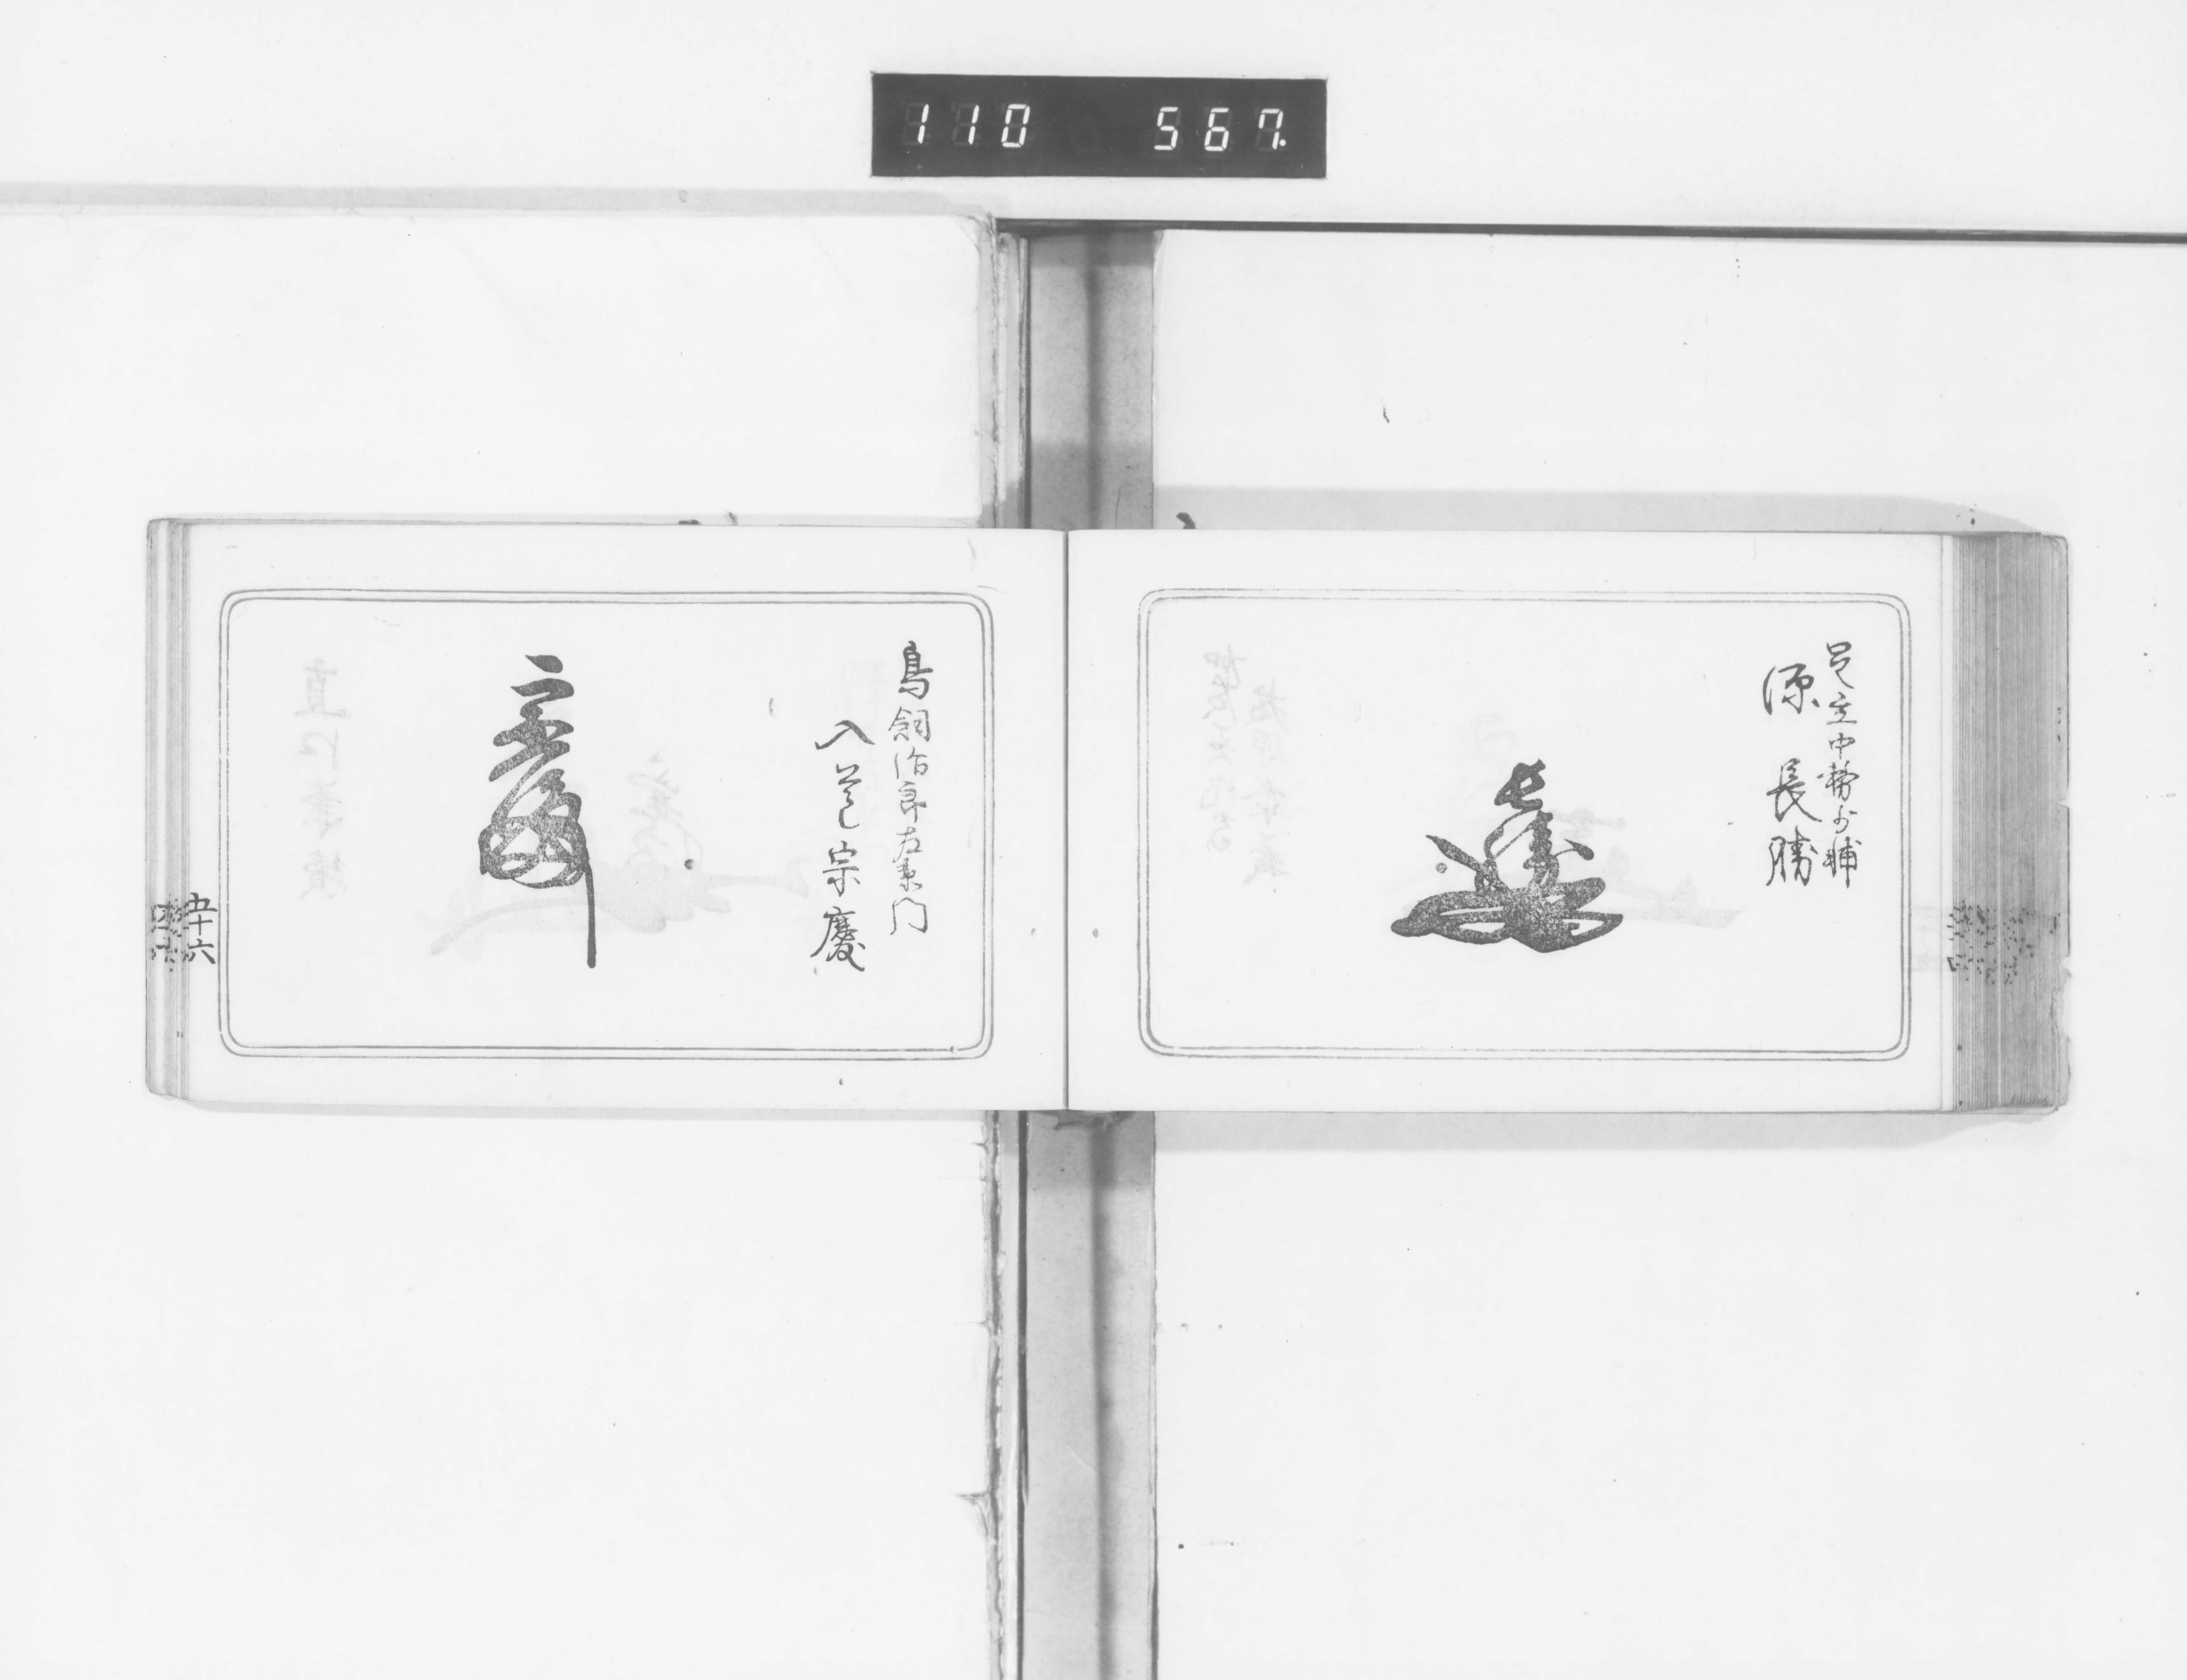 110 567
足立中務少輔
源長勝
鳥飼治郎左衛門
入道宗慶
五十六